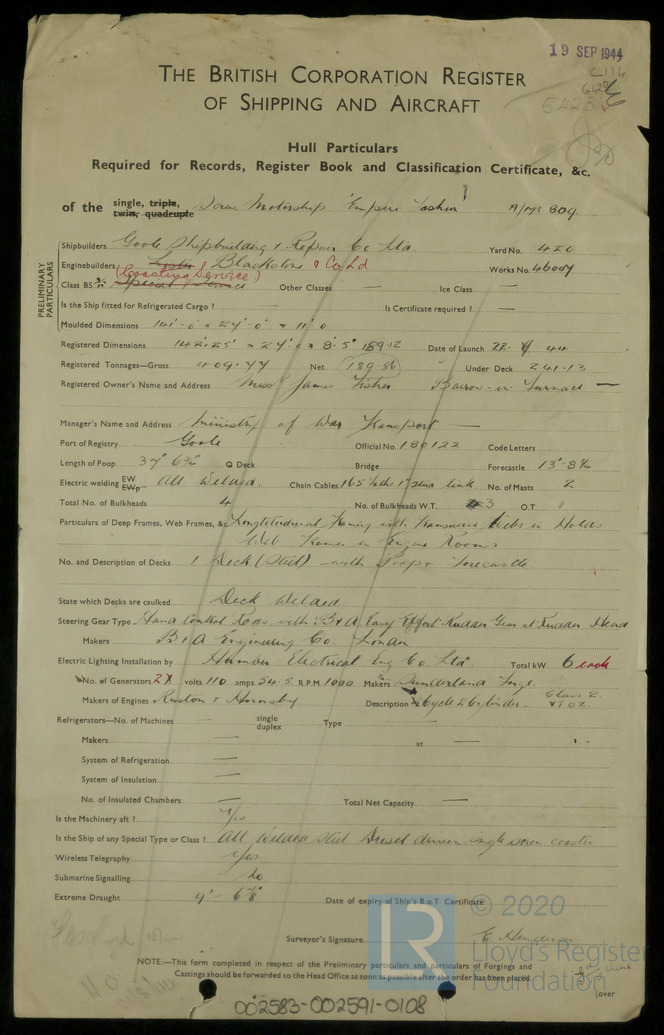 19 SEP 1944
THE BRITISH CORPORATION REGISTER
OF SHIPPING AND AIRCRAFT
Hull Particulars
Required for Records, Register Book and Classification Certificate, &c.
of the single, triple, twin, quadruple Screw Motorship "Empire 809.
Shipbuilders Goole Shipbuilding & Repair Co Ltd. Yard No. 420
PRELIMINARY PARTICULARS
Enginebuilders Blackstone & Co Ld Works No. 46007
(Coasting Service)
Class BS.* Special Service Other Classes — Ice Class —
Is the Ship fitted for Refrigerated Cargo? — Is Certificate required? —
Moulded Dimensions 142'-0" x 27'-0" x 11'-0
Registered Dimensions 142.25' x 27'.0 x 8'.5" 189.12 Date of Launch 22. 4 44
Registered Tonnages—Gross 409.77 Net 189.86 Under Deck 241.13
Registered Owner's Name and Address Messrs James Fisher Barrow-in-Furness —
Manager's Name and Address Ministry of War Transport —
Port of Registry Goole Official No. 180122 Code Letters
Length of Poop 37' 6¾" Q Deck Bridge Forecastle 13'-8¾
Electric welding EW EWp All Welded Chain Cables 165 1" stud link No. of Masts 2
Total No. of Bulkheads 4 No. of Bulkheads W.T. 3 O.T.
Particulars of Deep Frames, Web Frames, &c. Longitudinal Framing with Transverse Webs in Holds
Web Frames in Engine Rooms
No. and Description of Decks 1 Deck (Steel) with Poop & Forecastle.
State which Decks are caulked Deck Welded
Steering Gear Type Hand Control Rods with B & A Easy Effort Rudder Gear at Rudder Head
Makers B & A Engineering Co. London
Electric Lighting Installation by Humber Electrical Eng Co. Ltd Total kW. 6 each
No. of Generators 2 volts 110 amps 54.5 R.P.M 1000 Makers Sunderland Forge.
Makers of Engines Ruston & Hornsby Description Cycle 2 Cylinder. Class 2 VTOZ
Refrigerators—No. of Machines — single duplex Type —
Makers — at —
System of Refrigeration —
System of Insulation —
No. of Insulated Chambers — Total Net Capacity —
Is the Machinery aft? Yes
Is the Ship of any Special Type or Class? All Welded Steel Diesel driven single screw coaster
Wireless Telegraphy Yes
Submarine Signalling No
Extreme Draught 9'- 6⅞" Date of expiry of Ship's B.o.T Certificate
Surveyor's Signature E. Henderson
NOTE.—This form completed in respect of the Preliminary particulars and particulars of Forgings and
Castings should be forwarded to the Head Office as soon as possible after the order has been placed.
[over
LR © 2020
Lloyd's Register
Foundation
002583-002591-0108